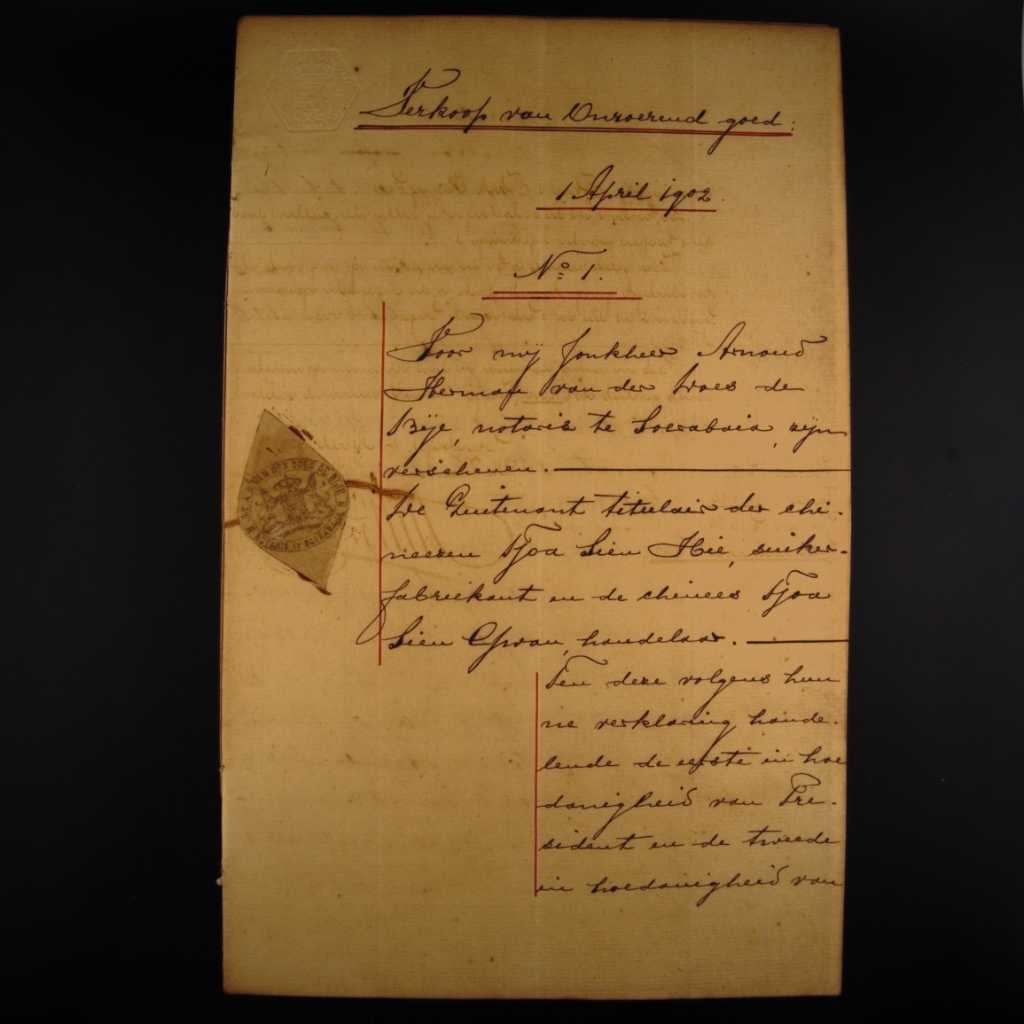 Verkoop van Onroerend goed:
1 April 1902.
No 1.
Voor mij Jonkheer Arnoud
Herman van der Does de
Bije, notaris te Soerabaia, zijn
verschenen.
De Luitenant titulair der chi-
neezen Tjoa Sien Hie, suiker-
fabriekant en de chinees Tjoa
Sien Gwan, handelaar.
Ten deze volgens hun
ne verklaring hande-
lende de eerste in hoe
danigheid van Pre-
sident en de tweede
in hoedanigheid van